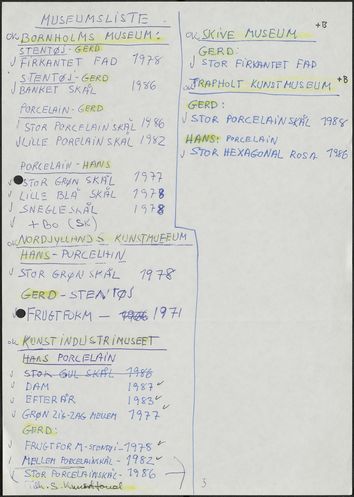 MUSEUMSLISTE.
ok BORNHOLMS MUSEUM:
STENTØJ - GERD
√ FIRKANTET FAD 1978
STENTØJ - GERD
√ BANKET SKÅL 1986
PORCELAIN - GERD
√ STOR PORCELAIN SKÅL 1986
√ LILLE PORELAIN SKÅL 1982
PORCELAIN - HANS
√ STOR GRØN SKÅL 1977
√ LILLE BLÅ SKÅL 1978
√ SNEGLESKÅL 1978
√ + BO (SK)
ok NORDJYLLANDS KUNSTMUSEUM
HANS - PORCELAIN
√ STOR GRØN SKÅL 1978
GERD - STENTØJ
√ FRUGTFORM - 1966 1971
ok KUNSTINDUSTRIMUSEET
HANS PORCELAIN
STOR GUL SKÅL 1986
√ DAM 1987 √
√ EFTERÅR 1983 √
√ GRØN ZIG-ZAG MELLEM 1977 √
GERD:
√ FRUGTFORM - STENTØJ - 1978 √
√ MELLEM PORCELAINSKÅL - 1982 √
√ STOR PORCELAINSKÅL - 1986
ok SKIVE MUSEUM +B
GERD:
√ STOR FIRKANTET FAD
ok TRAPHOLT KUNSTMUSEUM +B
GERD:
√ STOR PORCELAINSKÅL 1988
HANS: PORCELAIN
√ STOR HEXAGONAL ROSA 1986